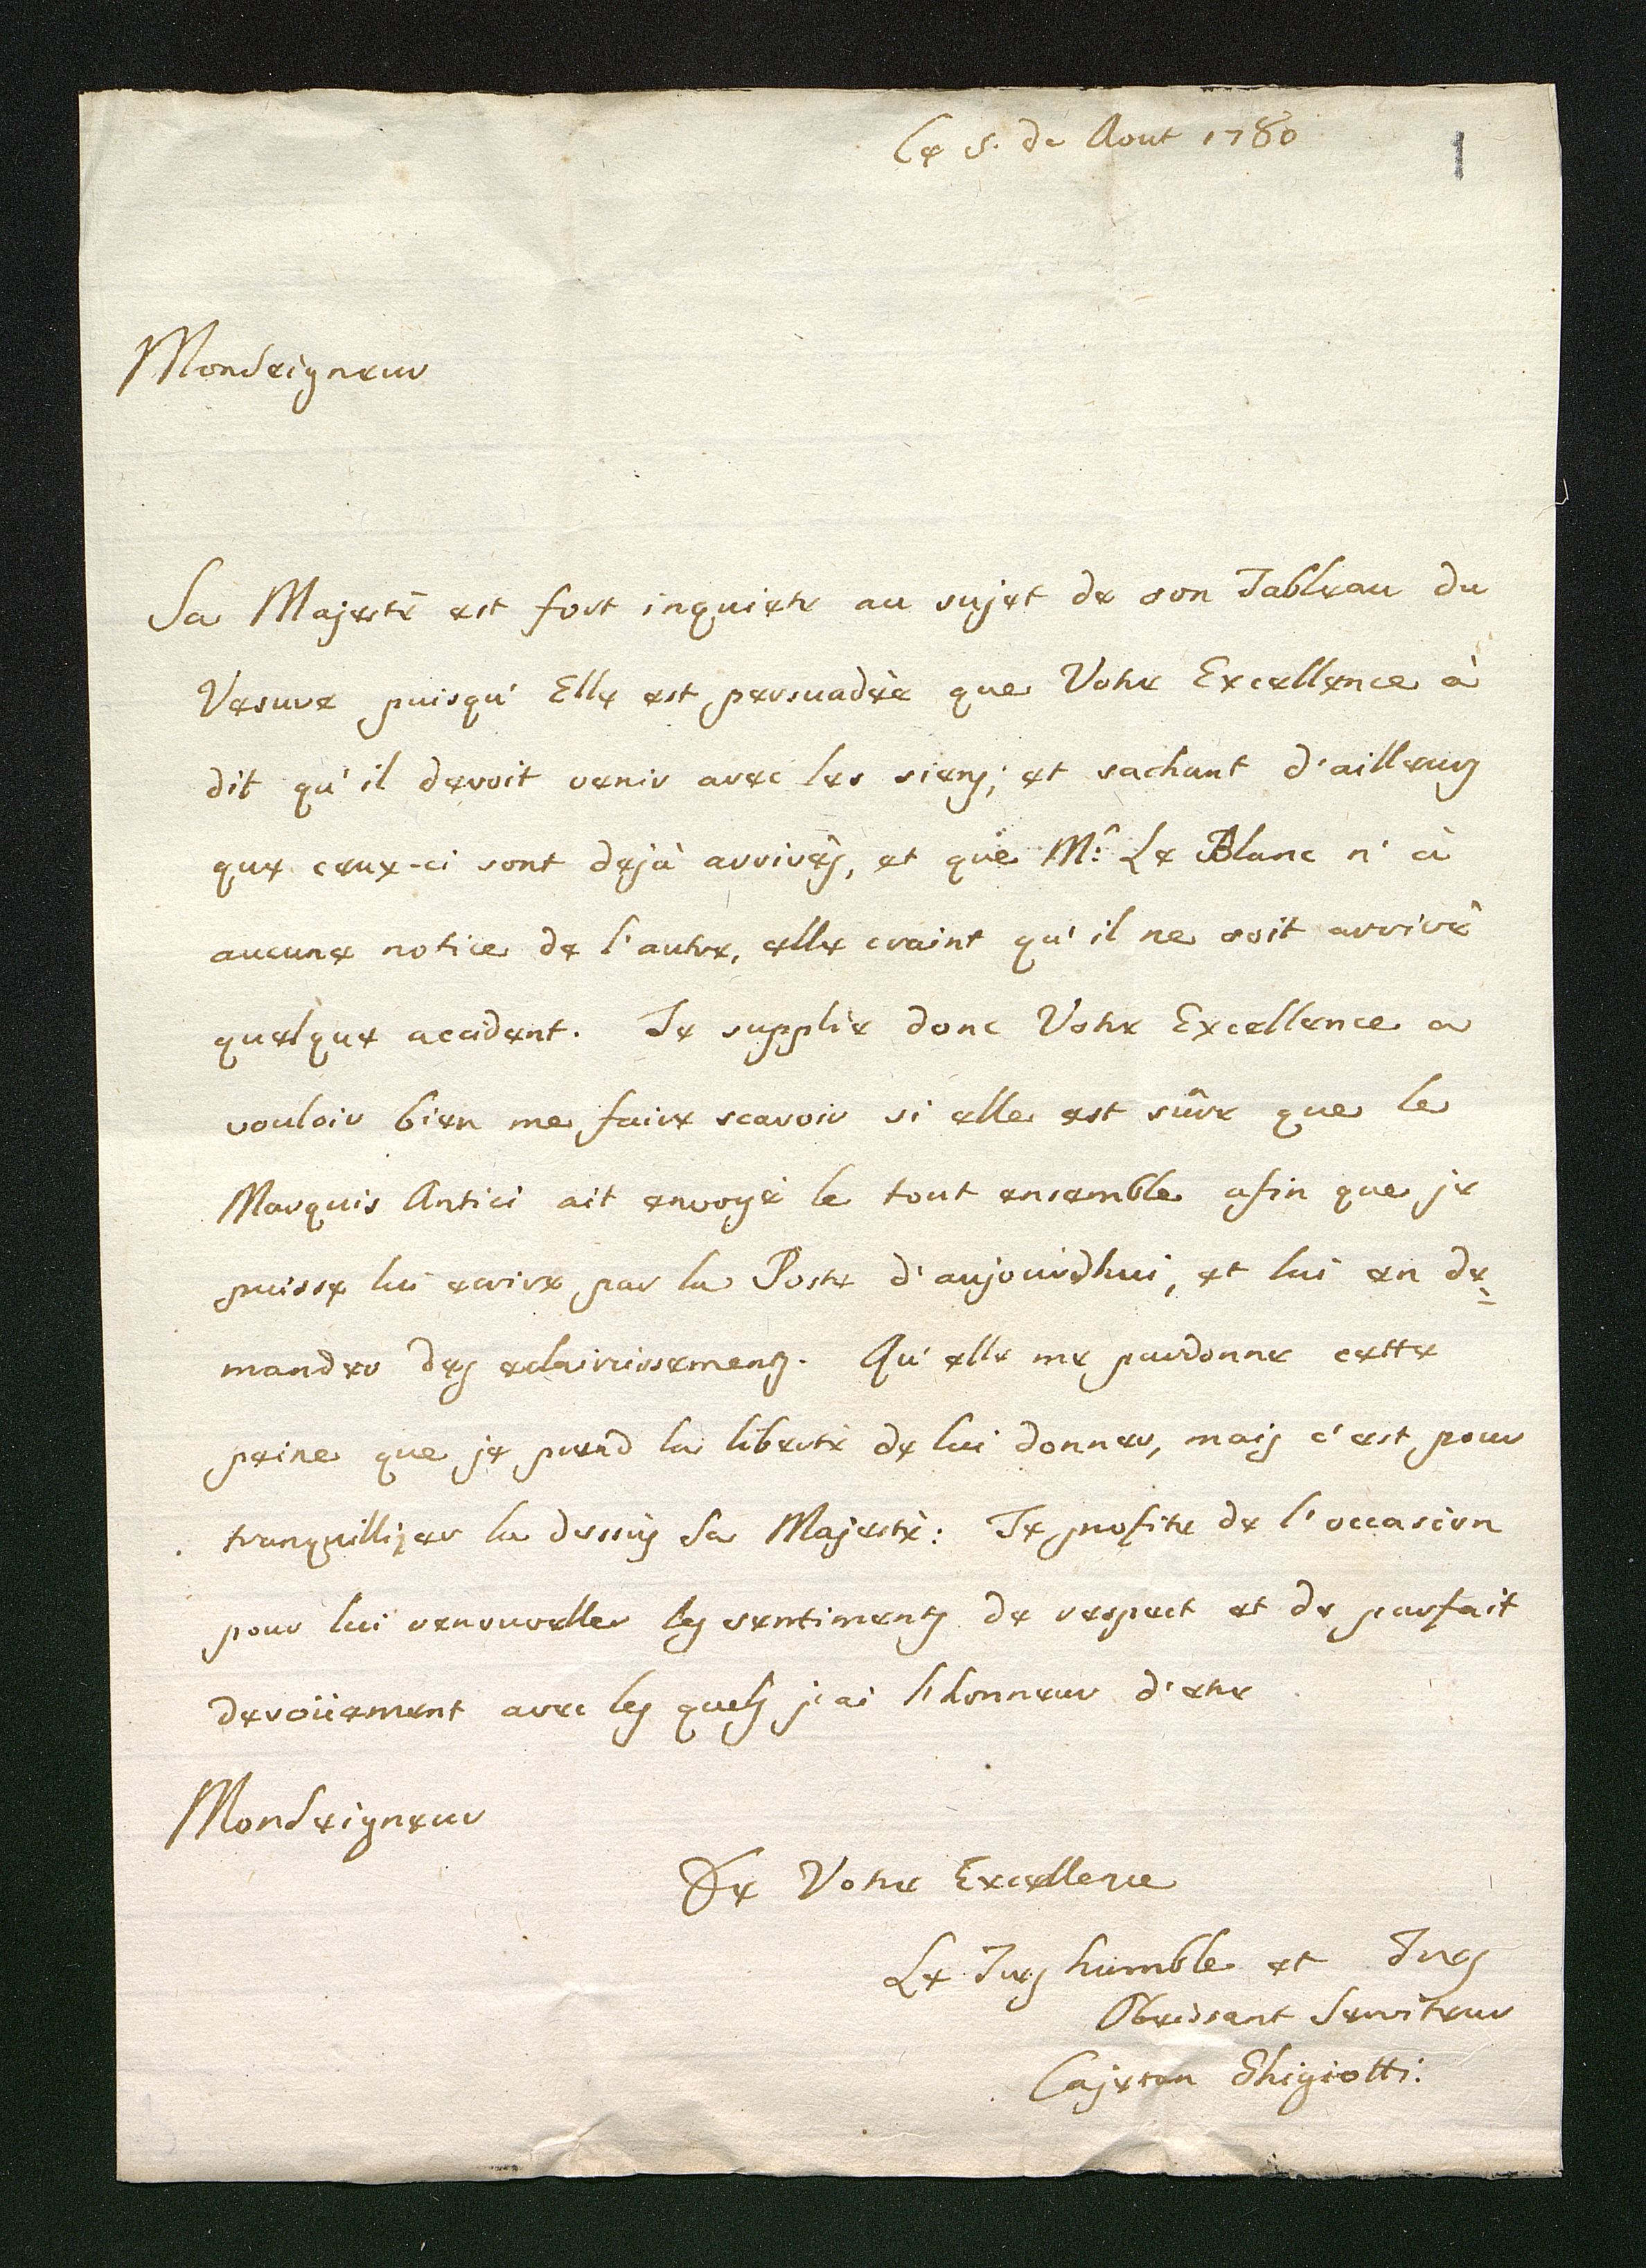 Ce 5. de Aout 1780
1
Monseigneur
Sa Majestè est fort inquiete au sujet de son Tableau du
Vesuve puisqu' Elle est persuadèe que Votre Excellence à
dit qu'il devoit venir avec les siens; et sachant d'ailleurs
que ceux-ci sont dejà arrivès, et que Mr: Le Blanc n' à
aucune notice de l'autre, elle craint qu' il ne soit arrivè
quelque accident. Je supplie donc Votre Excellence a
vouloir bien me faire scavoir si elle est sûre que le
Marquis Antici ait envoyè le tout ensemble afin que je
puisse lui ecrire par la Poste d'aujourdhui, et lui en de=
mander des eclaircissemens. Qu' elle me pardonne cette
peine que je prend la libertè de lui donner, mais c'est pour
tranquillizer la dessus Sa Majestè: Je profite de l'occasion
pour lui renouveller les sentimens de respect et de parfait
devoüement avec les quels j'ai l'honneur d'etre
Monseigneur
De Votre Excellence
Le Tres humble et Tres
Obeissant Serviteur
Cajetan Ghigiotti.